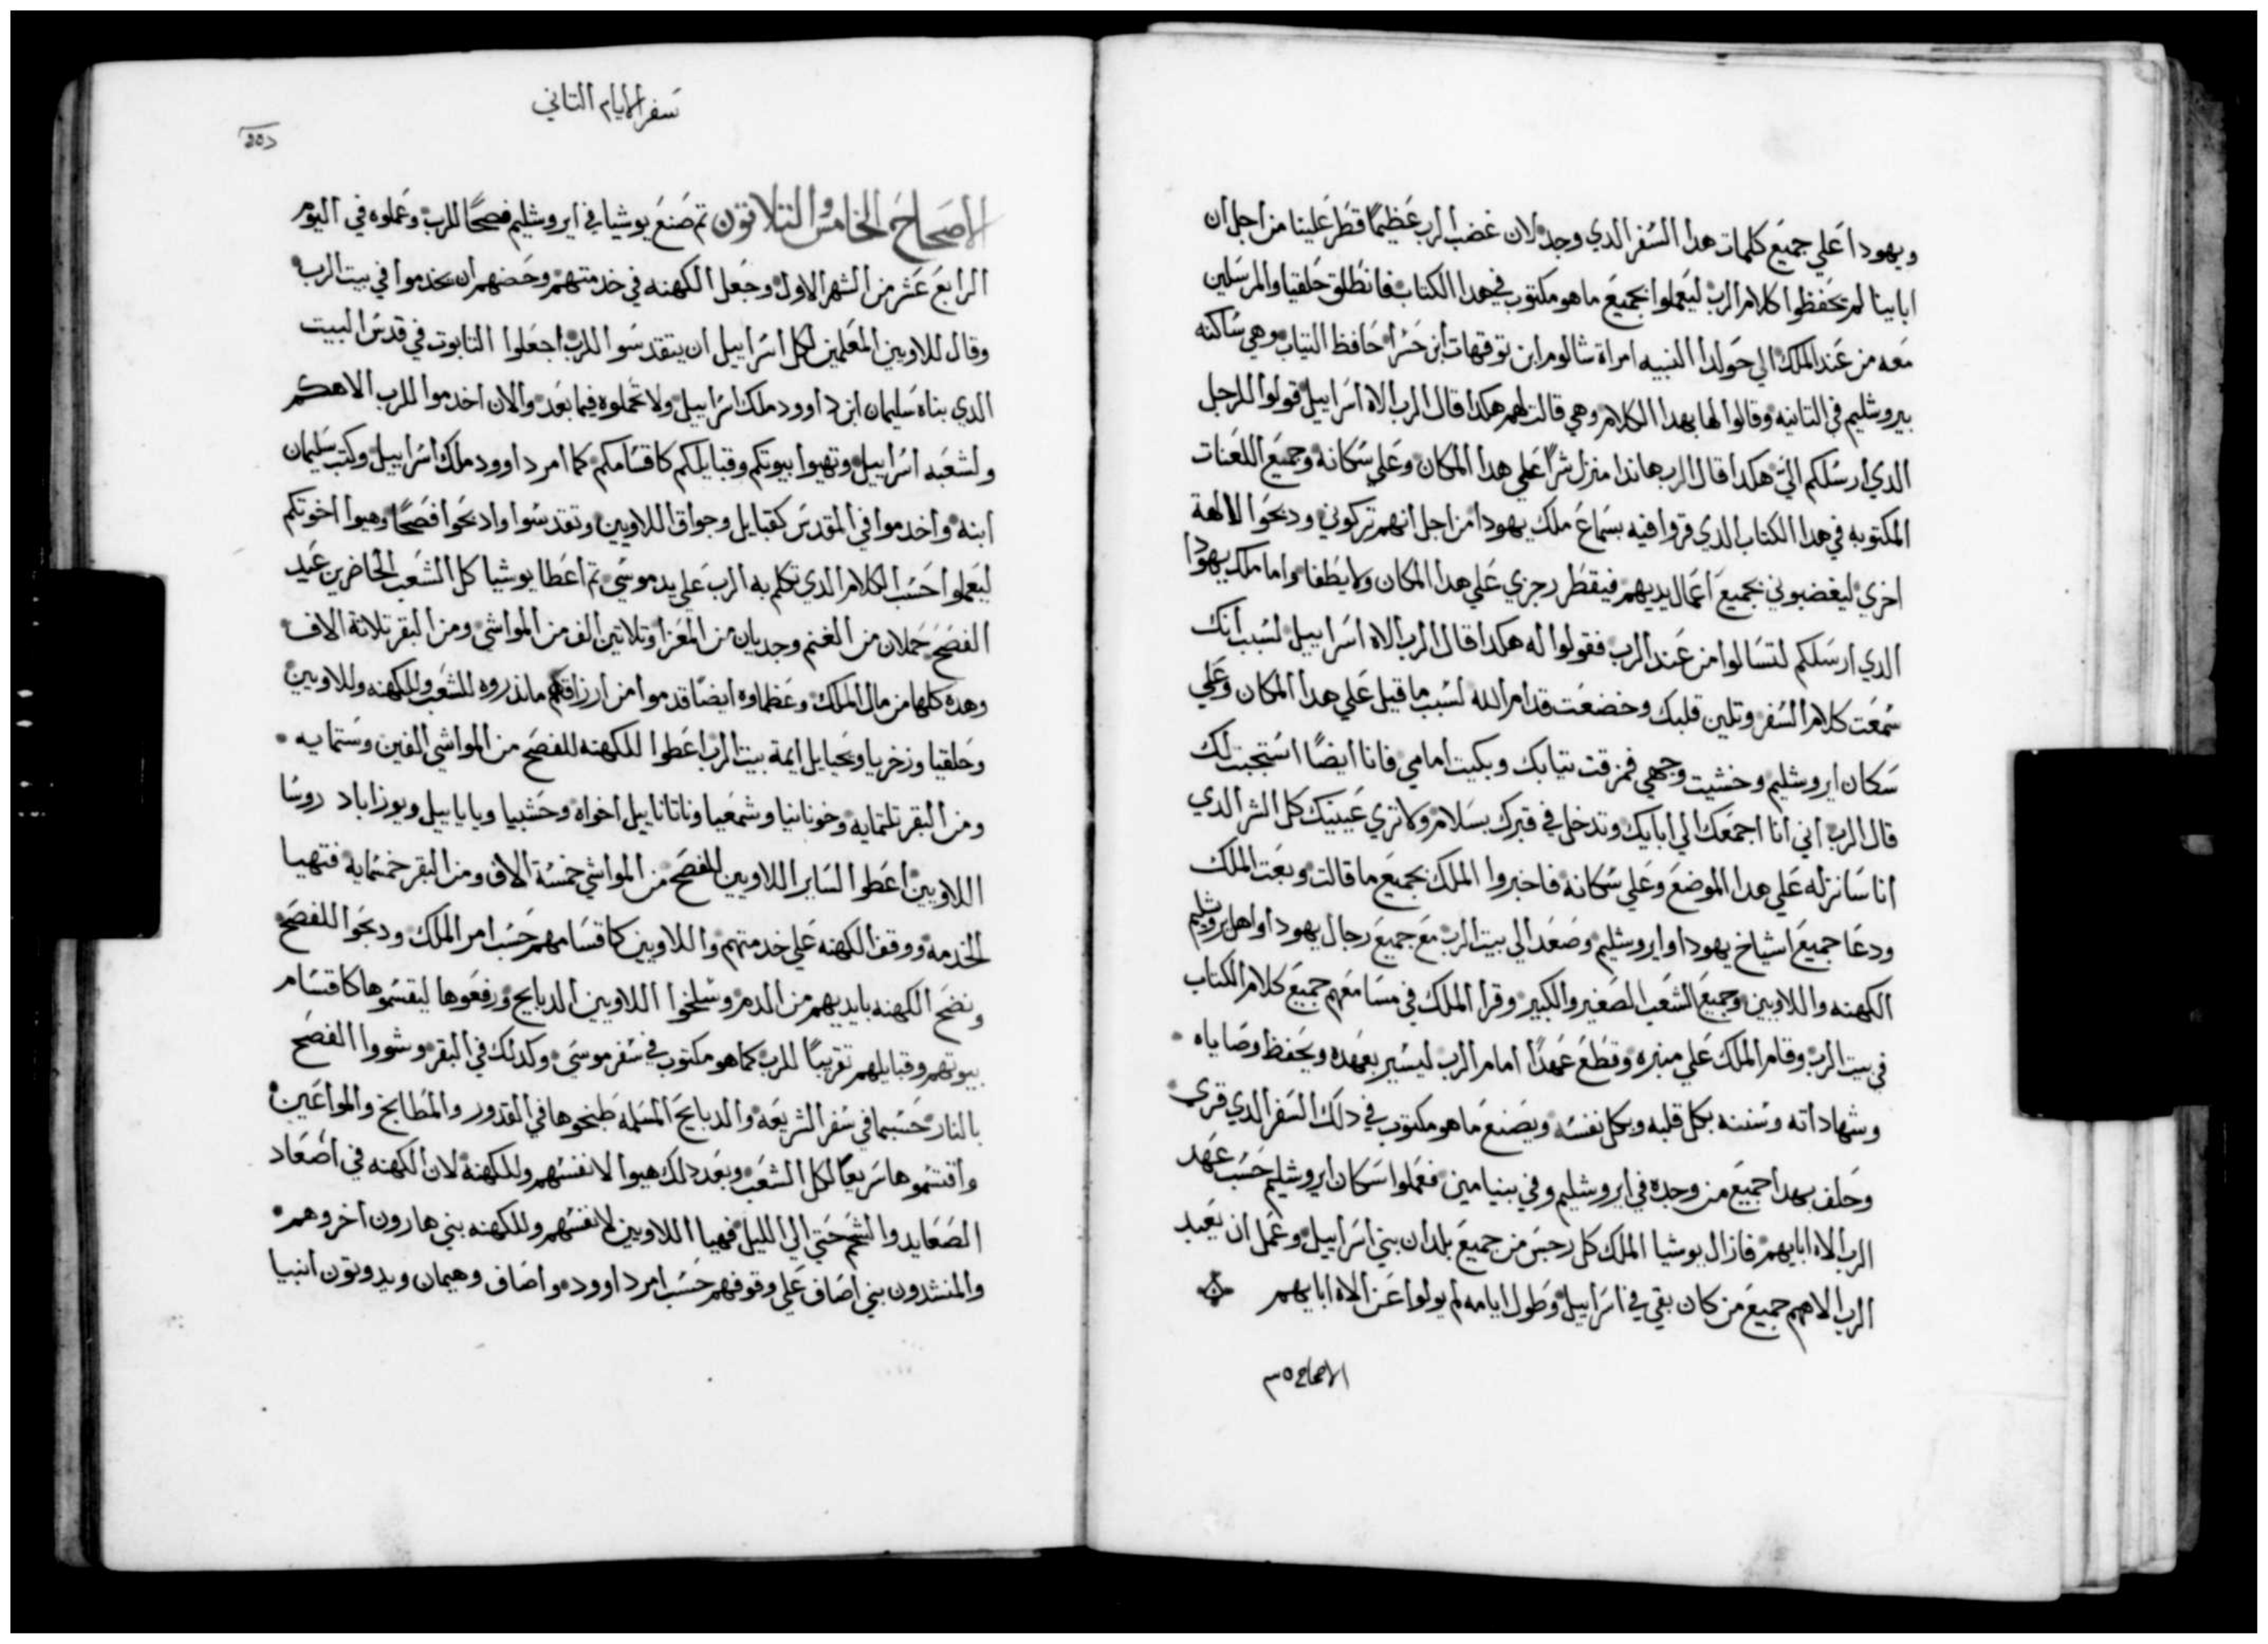 ويهودا علي جميع كلمات هدا السفر الدي وجد لان غضب الرب عظيمًا قطر علينا من اجل ان
اباينا لم يحفظوا كلام الرب ليعملوا بجميع ما هو مكتوب في هدا الكتاب فانطلق حلقيا والمرسلين
معه من عند الملك الي حولدا النبيه امراة شالوم ابن توقهات ابن حسرا حافظ التياب وهي ساكنه
بيروشليم في التانيه وقالوا لها بهدا الكلام وهي قالت لهم هكدا قال الرب الاه اسراييل قولوا للرجل
الدي ارسلكم الي هكدا قال الرب هاندا منزل شرًا علي هدا المكان وعلي سكانه وجميع اللعنات
المكتوبه في هدا الكتاب الدي قروا فيه بسماع ملك يهودا من اجل انهم تركوني ودبحوا لالهة
اخري ليغضبوني بجميع اعمال يديهم فيقطر رجزي علي هدا المكان ولا يطفا واما ملك يهودا
الدي ارسلكم لتسالوا من عند الرب فقولوا له هكدا قال الرب الاه اسراييل لسبب انك
سمعت كلام السفر وتلين قلبك وخضعت قدام الله لسبب ما قيل علي هدا المكان وعلي
سكان ايروشليم وخشيت وجهي فمزقت تيابك وبكيت امامي فانا ايضًا استجبت لك
قال الرب اني انا اجمعك الي ابايك وتدخل في قبرك بسلام ولا تري عينيك كل الشر الدي
انا سانزله علي هدا الموضع وعلي سكانه فاخبروا الملك بجميع ما قالت وبعت الملك
ودعا جميع اشياخ يهودا وايروشليم وصعد الي بيت الرب مع جميع رجال يهودا واهل يروشليم
الكهنه واللاويين وجميع الشعب الصغير والكبير وقرا الملك في مسامعهم جميع كلام الكتاب
في بيت الرب وقام الملك علي منبره وقطع عهدًا امام الرب ليسير بعهده ويحفظ وصاياه
وشهاداته وسننه بكل قلبه وبكل نفسه ويصنع ما هو مكتوب في دلك السفر الدي قري
وحلف بهدا جميع من وجده في ايروشليم وفي بنيامين فعملوا سكان ايروشليم حسب عهد
الرب الاه ابايهم فازال يوشيا الملك كل رجس من جميع بلدان بني اسراييل وعمل ان يعبد
الرب الاههم جميع من كان بقي في اسراييل وطول ايامه لم يولوا عن الاه ابايهم
الاصحاح ٣٥
سفر الايام التاني
الاصحاح الخامس والتلاتون تم صنع يوشيا في ايروشليم فصحًا للرب وعملوه في اليوم
الرابع عشر من الشهر الاول وجعل الكهنه في خدمتهم وحضهم ان يخدموا في بيت الرب
وقال للاويين المعلمين لكل اسراييل ان يتقدسوا للرب اجعلوا التابوت في قدس البيت
الدي بناه سليمان ابن داوود ملك اسراييل ولا تحملوه فيما بعد والان اخدموا للرب الاهكم
ولشعبه اسراييل وتهيوا بيوتكم وقبايلكم كاقسامكم كما امر داوود ملك اسراييل وكتب سليمان
ابنه واخدموا في المقدس كقبايل وجواق اللاويين وتقدسوا وادبحوا فصحًا وهيوا اخوتكم
ليعملوا حسب الكلام الدي تكلم به الرب علي يد موسي تم اعطا يوشيا كل الشعب الحاضرين عيد
الفصح حملان من الغنم وجديان من المعزا وتلاتين الف من المواشي ومن البقر تلاتة الاف
وهده كلها من مال الملك وعظماوه ايضًا قدموا من ارزاقهم ما نذروه للشعب وللكهنه وللاويين
وحلقيا وزخريا ويحيايل ايمة بيت الرب اعطوا للكهنه للفصح من المواشي الفين وستمايه
ومن البقر تلتمايه وخونانيا وشمعيا وناتاناييل اخواه وحشبيا وياياييل ويوزاباد روسا
اللاويين اعطوا لساير اللاويين للفصح من المواشي خمسة الاف ومن البقر خمسمايه فتهيا
الخدمه ووقف الكهنه علي خدمتهم واللاويين كاقسامهم حسب امر الملك ودبحوا للفصح
ونضح الكهنه بايديهم من الدم وسلخوا اللاويين الدبايح ورفعوها ليقسموها كاقسام
بيوتهم وقبايلهم تقريبًا للرب كما هو مكتوب في سفر موسي وكدلك في البقر وشووا الفصح
بالنار حسبما في سفر الشريعه والدبايح المسلمه طبخوها في القدور والمطابخ والمواعين
واقتسموها سريعًا لكل الشعب وبعد دلك هيوا لانفسهم وللكهنه لان الكهنه في اصعاد
الصعايد والشحم حتي الي الليل فهيا اللاويين لانفسهم وللكهنه بني هارون اخروهم
والمنشدون بني اصاف علي وقوفهم حسب امر داوود واصاف وهيمان ويدوتون انبيا